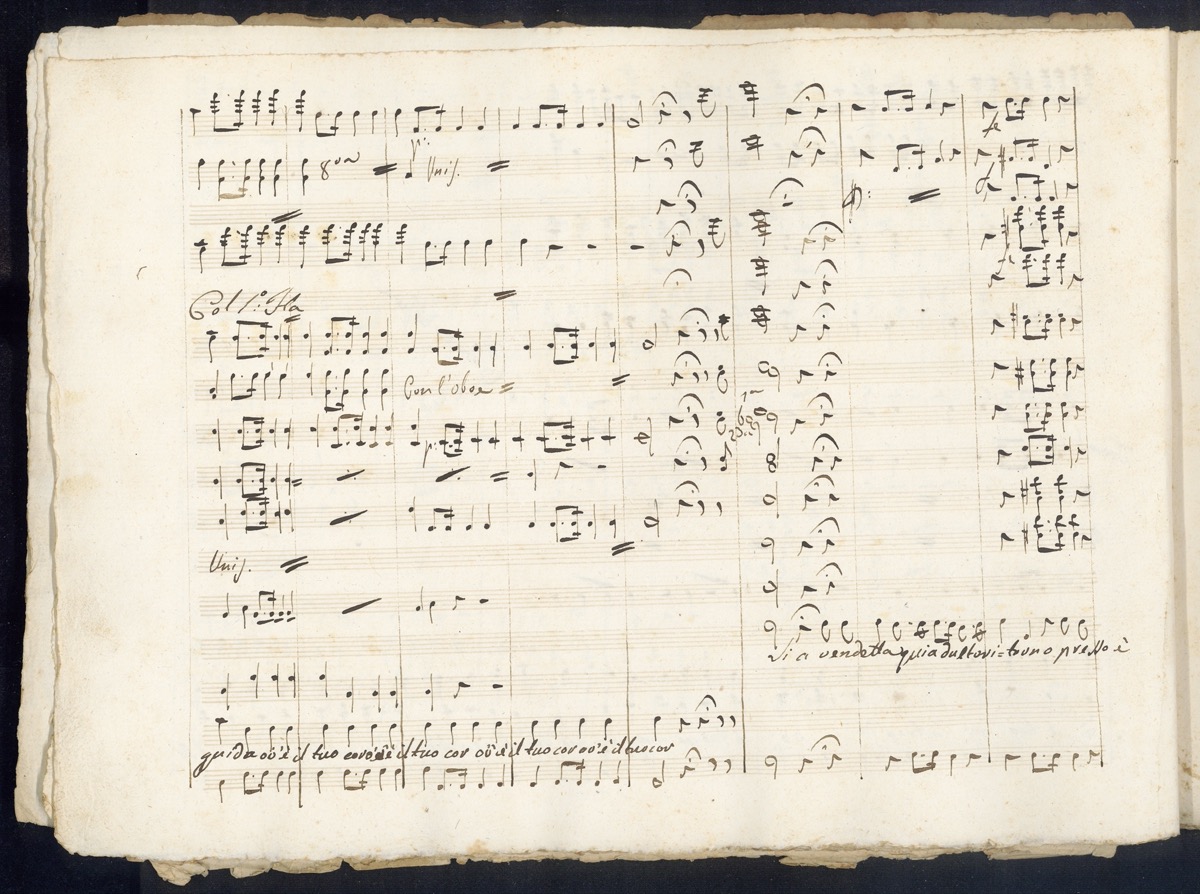 8va
Unis.
Col 1º: Fla
Con l'oboe
Unis.
Si a vendetta
presso è
guida ov'è il tuo cor ov'è il tuo cor ov'è il tuo cor ov'è il tuo cor